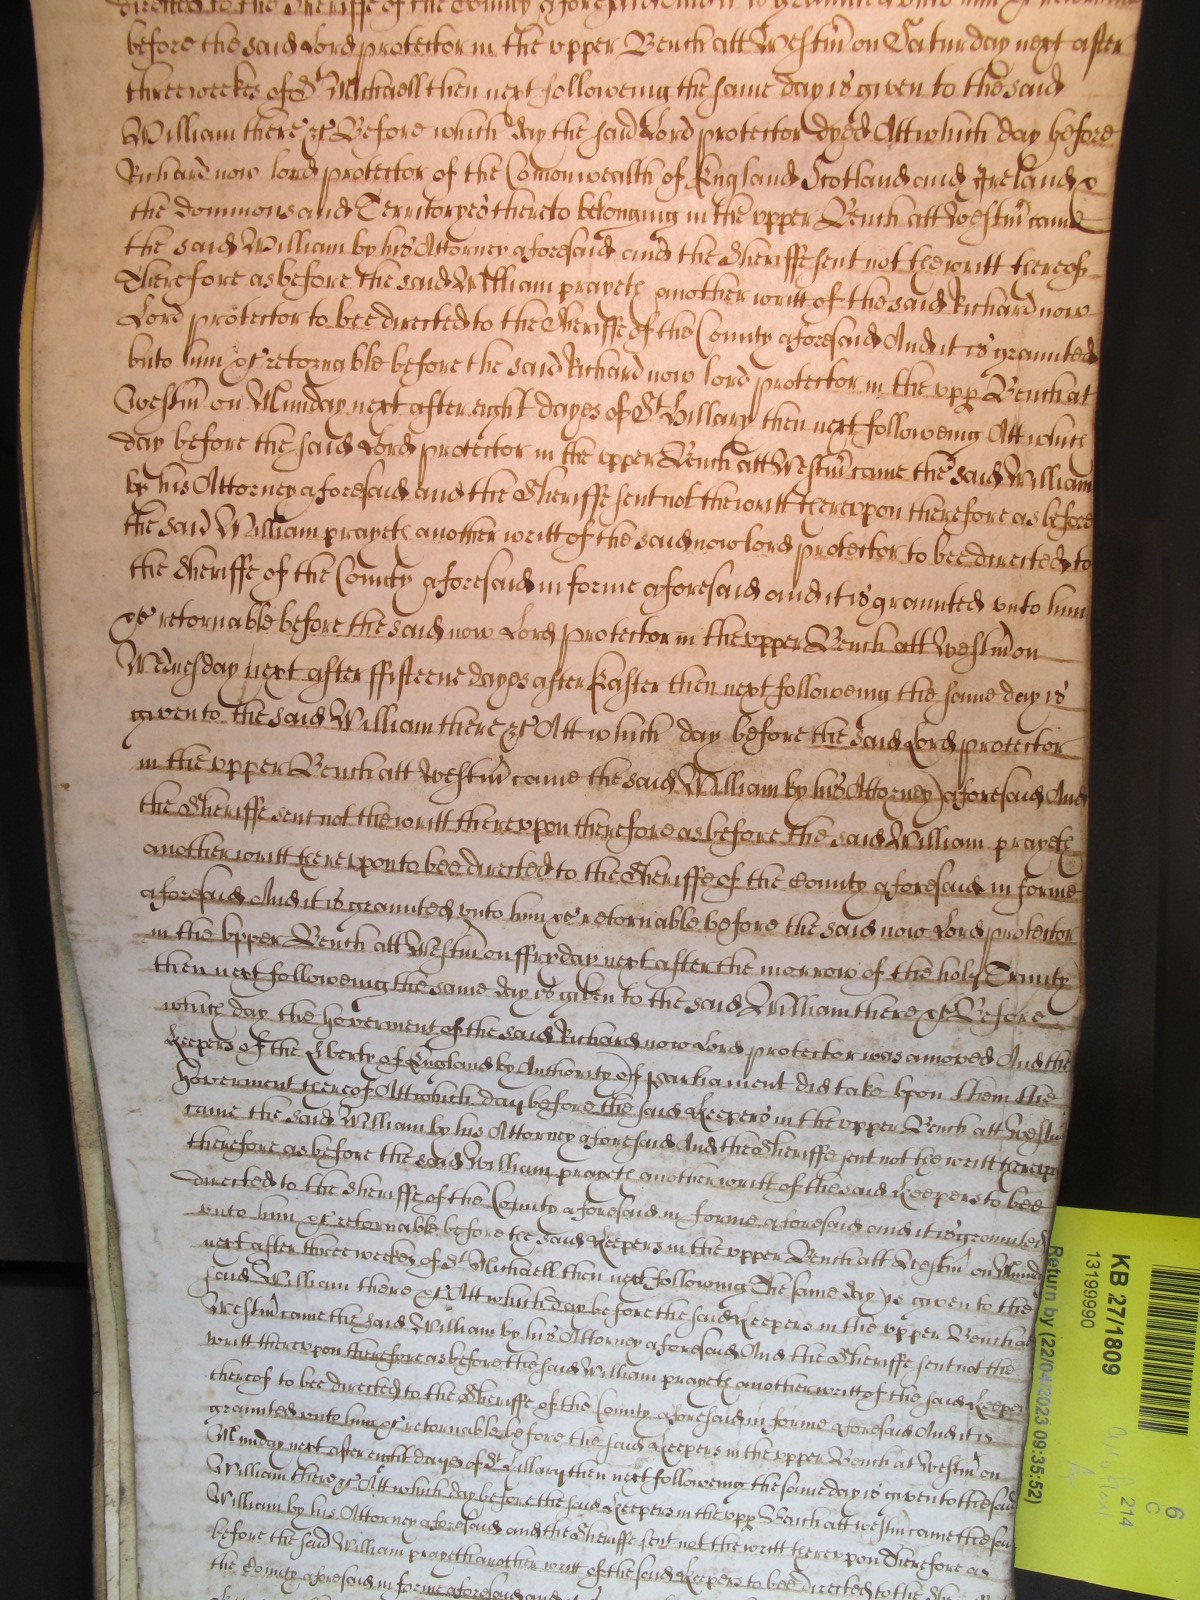 directed to the Sheriffe of the County aforesaid in
before the said Lord protector in the upper Bench att Westm̃ on Saturday next after
three weekes of St Michaell then next followeing the same day is given to the said
William there &c Before which day the said Lord protector dyed Att which day before
Richard now lord protector of the Com̃onwealth of England Scotland and Ireland &
the dominons and Territoryes thereto belonging in the upper Bench att Westm̃ came
the said William by his Attorney aforesaid and the Sheriffe sent not the writt thereof
Therefore as before the said William prayeth another writt of the said Richard now
Lord protector to bee directed to the Sheriffe of the County aforesaid And it is graunted
unto him &c retornable before the said Richard now lord protector in the upp Bench at
Westm̃ on Munday next after eight dayes of St Hillary then next followeing Att which
day before the said Lord protector in the upper Bench att Westm̃ came the said William
by his Attorney aforesaid and the Sheriffe sent not the writt thereupon therefore as before
the said William prayeth another writt of the said now lord protector to bee directed to
the Sheriffe of the County aforesaid in forme aforesaid and it is graunted unto him
&c retornable before the said now Lord protector in the upper Bench att Westm̃ on
Wednesday next after ffifteene dayes after Easter then next followeing the same day is
given to the said William there &c Att which day before the said Lord protector
in the upper Bench att Westm̃ came the said William by his Attorney aforesaid And
the Sheriffe sent not the writt thereupon therefore as before the said William prayeth
another writt thereupon to bee directed to the Sheriffe of the County aforesaid in forme
aforesaid And it is graunted unto him &c retornable before the said now Lord protector
in the upper Bench att Westm̃ on ffryday next after the morrow of the holy Trinity
then next followeing the same day is given to the said William there &c Before
which day the Goverment of the said Richard now Lord protector was amoved And the
Keepers of the Liberty of England by Authority of parliament did take upon them the
Goverment thereof Att which day before the said Keepers in the upper Bench att Westm̃
came the said William by his Attorney aforesaid And the Sheriffe sent not the writt thereupon
therefore as before the said William prayeth another writt of the said Keepers to bee
directed to the Sheriffe of the County aforesaid in forme aforesaid and it is graunted
unto him &c retornable before the said Keepers in the upper Bench att Westm̃ on
next after three weekes of St Michaell then next following The same day is given to the
said William there &c Att which day before the said Keepers in the upper Bench at
Westm̃ came the said William by his Attorney aforesaid And the Sheriffe sent not the
writt thereupon therefore as before the said William prayeth another writt of the said Keepers
thereof to bee directed to the Sheriffe of the County aforesaid in forme aforesaid And it is
graunted unto him &c retornable before the said Keepers in the upper Bench at Westm̃ on
Munday next after eight dayes of St Hillary then next followeing the same day is given to the said
William there &c Att which day before the said Keepers in the upp Bench att westm̃ came the said
William by his Attorney aforesaid and the Sheriffe sent not the writt thereupon Therefore as
before the said William prayeth another writt of the said Keepers to bee directed to the
the County aforesaid in forme aforesaid and
KB 27/1809
13199990
Return by (22/04/2023 09:35:52)
6
C
214